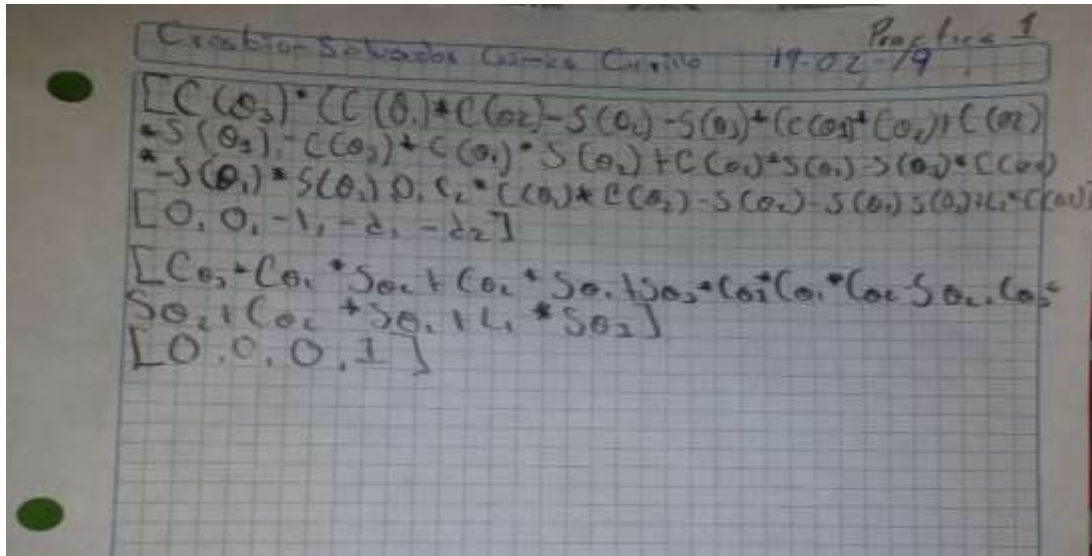 Practica 1
Salvador Gomez 19-02-19
[C(θ3)*(C(θ1)*C(θ2)-S(θ2)-S(θ3)*(C(θ1)*C(θ2)+C(θ2)
*S(θ1),-C(θ3)*C(θ1)*S(θ2)+C(θ2)*S(θ1)-S(θ3)*C(θ2)
*-S(θ1)*S(θ2),0,L2*C(θ1)*C(θ2)-S(θ2)-S(θ1)S(θ2)+L1*C(θ2)]
[0,0,-1,-d1-d2]
[Cθ3*Cθ1*Sθ2+Cθ2*Sθ1+Sθ3*Cθ2*Cθ1*Cθ2-Sθ2,Cθ3*
Sθ2+Cθ2*Sθ1+L1*Sθ2]
[0,0,0,1]